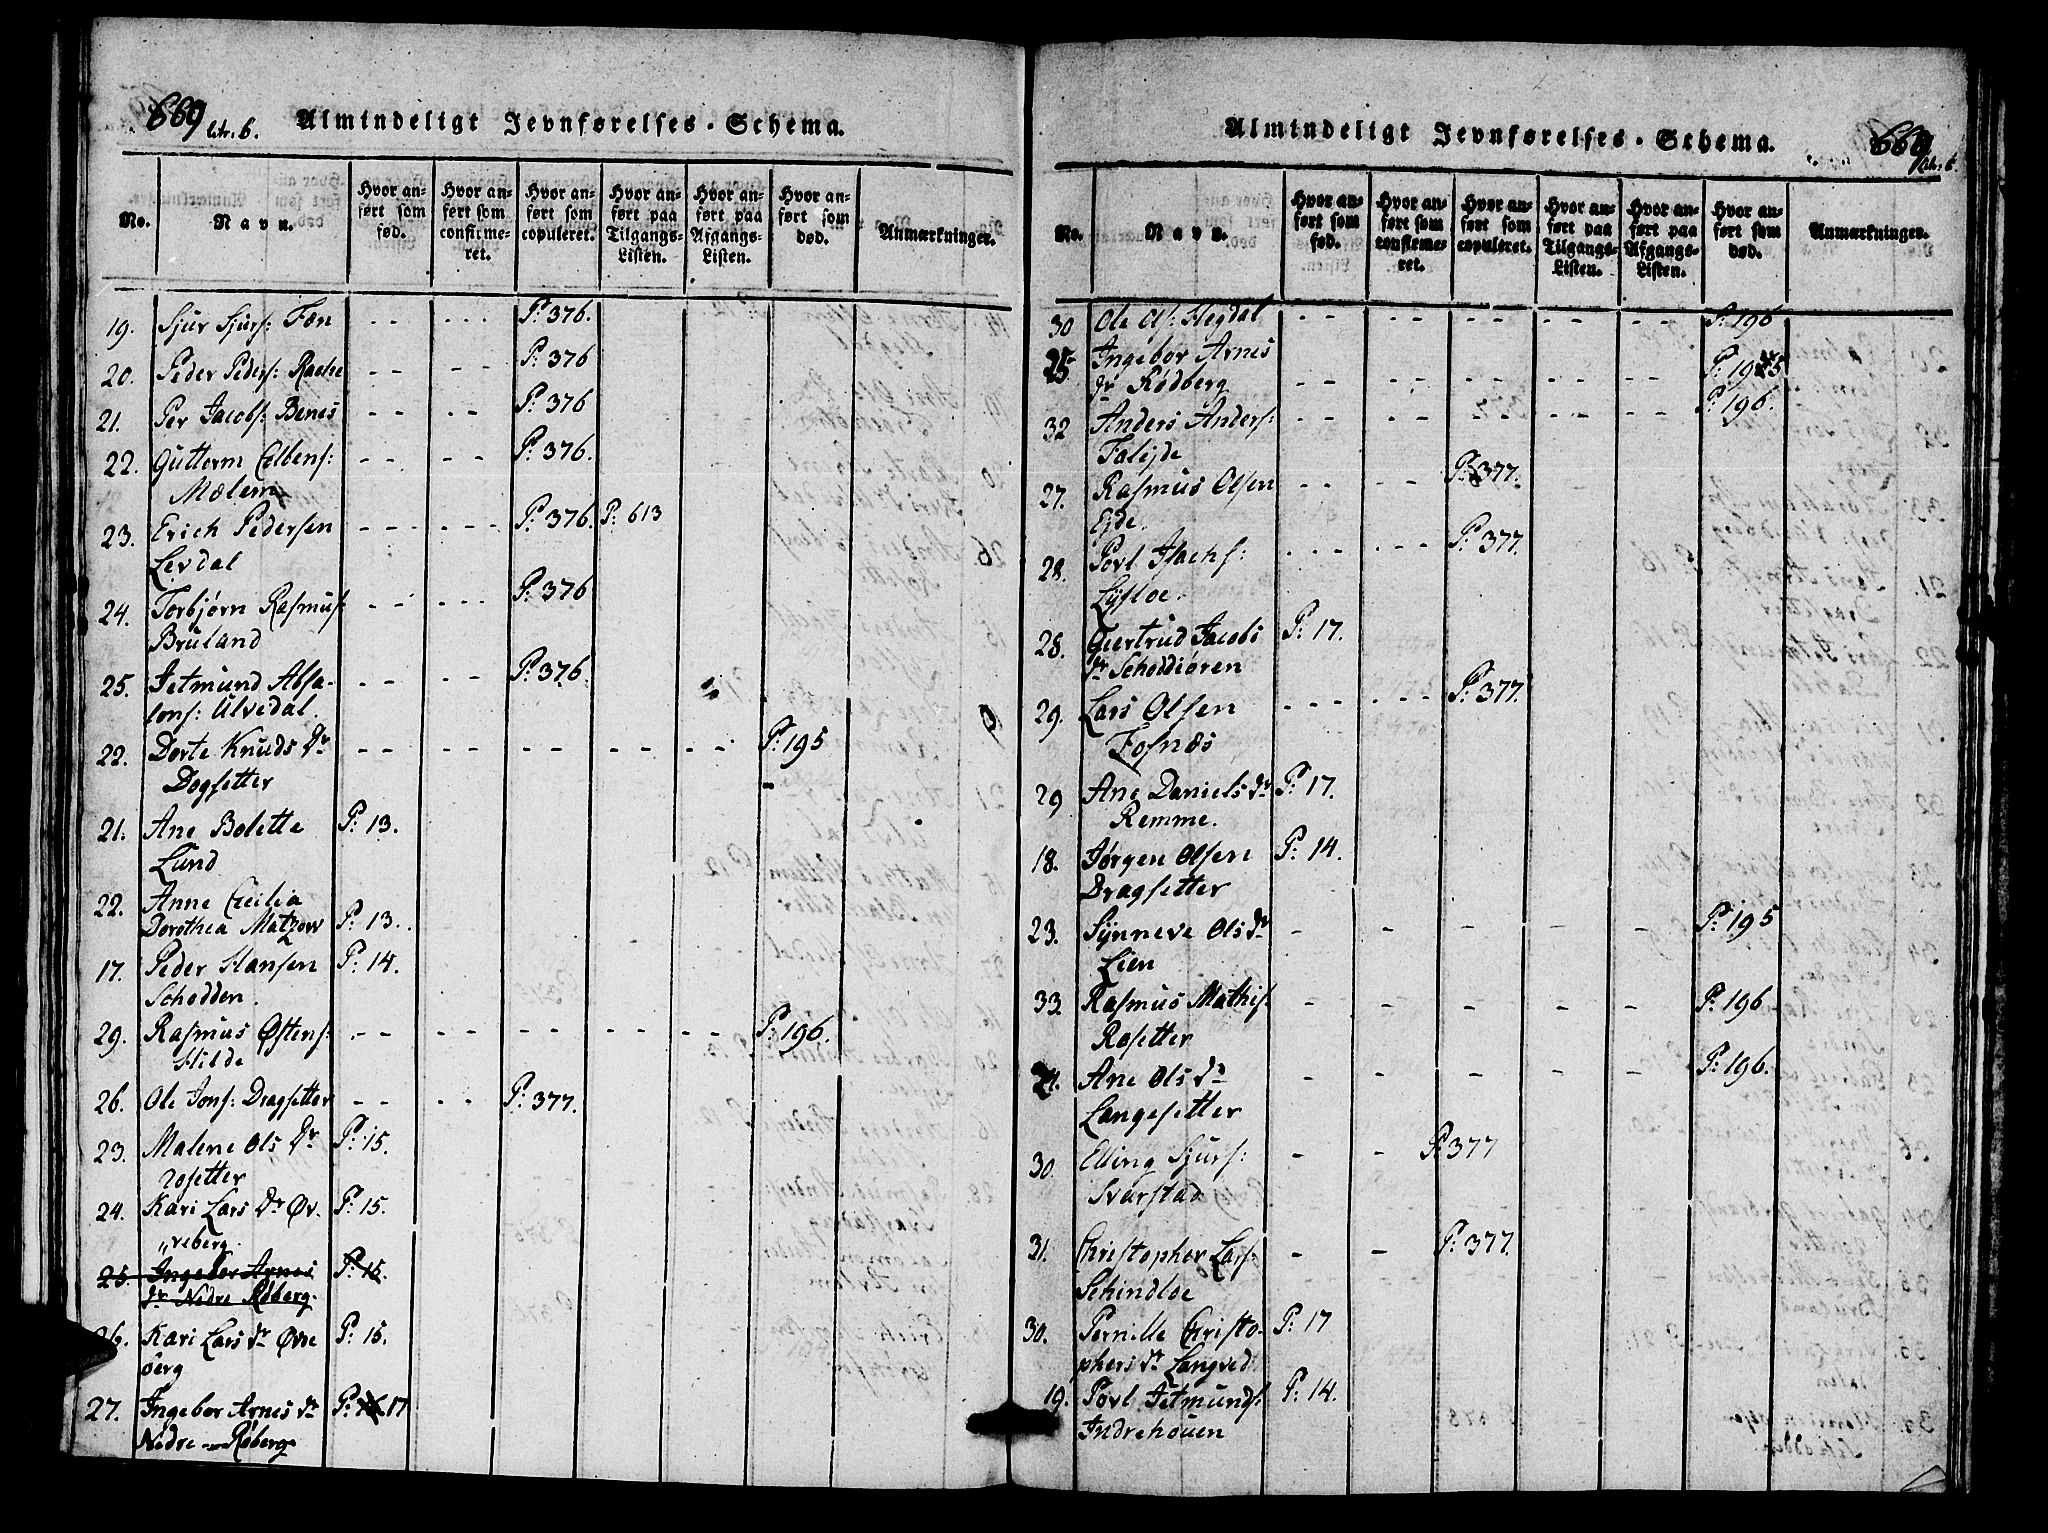 669 Litr. b.
Almindeligt Jevnførelses-Schema.
No. Navn. Hvor anført som fød. Hvor anført som confirmeret. Hvor anført som copuleret. Hvor anført paa Tilgangs-Listen. Hvor anført paa Afgangs-Listen. Hvor anført som død. Anmærkninger.
19. Sjur Sjurs: Fæn - - - - - P: 376.
20. Peder Peders: Rache - - - - P: 376
21. Per Jacobs: Benes - - - - P: 376
22. Guttorm Elbens: - - - - P: 376.
Mælem
23. Erich Pedersen - - - - - - P: 376. P: 613
Levdal
24. Torbjørn Rasmus: - - - - - P: 376
Bruland
25. Jetmund Absa- - - - - P: 376.
lons: Ulvedal.
22. Dorte Knuds Dr - - - - - - - - - - P: 195
Dogsetter
21. Ane Bolette P: 13.
Lund
22. Anne Cecilia
Dorothea Matzow P: 13.
17. Peder Hansen P: 14.
Schodden.
29. Rasmus Østens: - - - - - - - - - - P: 196.
Hilde
26. Ole Jons: Dragsetter - - - - P: 377.
23. Malene Ols Dr P: 15.
Rosetter
24. Kari Lars Dr Øv- P: 15.
"reberg.
25. Ingebor Arnes P: 15.
Dr Nedre Røberg.
26. Kari Lars Dr Øvre P: 15.
berg
27. Ingebor Arnes Dr P: 16. 17
Nedre Røberg
Almindeligt Jevnførelses-Schema.
669 Litr. b.
No. Navn. Hvor anført som fød. Hvor anført som confirmeret. Hvor anført som copuleret. Hvor anført paa Tilgangs-Listen. Hvor anført paa Afgangs-Listen. Hvor anført som død. Anmærkninger.
30 Ole Ols: Hegdal - - - - - - - - - - P: 196
25 Ingebor Arnes
Dr Rødberg - - - - - - - - - - P: 195
32 Anders Anders: - - - - - - - - - - P: 196.
Faleide
27. Rasmus Olsen - - - - P: 377.
Eide.
28. Povl Isachs: - - - - - - P: 377.
Lÿsloe.
28. Giertrud Jacobs P: 17.
Dr Schoddiøren
29. Lars Olsen - - - - - - P: 377.
Fosnæs
29 Ane Daniels Dr P: 17.
Remme.
18. Jørgen Olsen P: 14.
Dragsetter
23. Sÿnneve Ols Dr - - - - - P: 195
Lien
33. Rasmus Mathis: - - - - - P: 196
Rosetter
24. Ane Ols Dr - - - - - P: 196.
Langesetter
30. Elling Sjurs: - - P: 377
Svarstad
31. Christopher Lars: - - P: 377.
Schindloe
30. Pernille Christo- P: 17
phers Dr Langved
19. Povl Jetmunds: P: 14.
Indrehouen